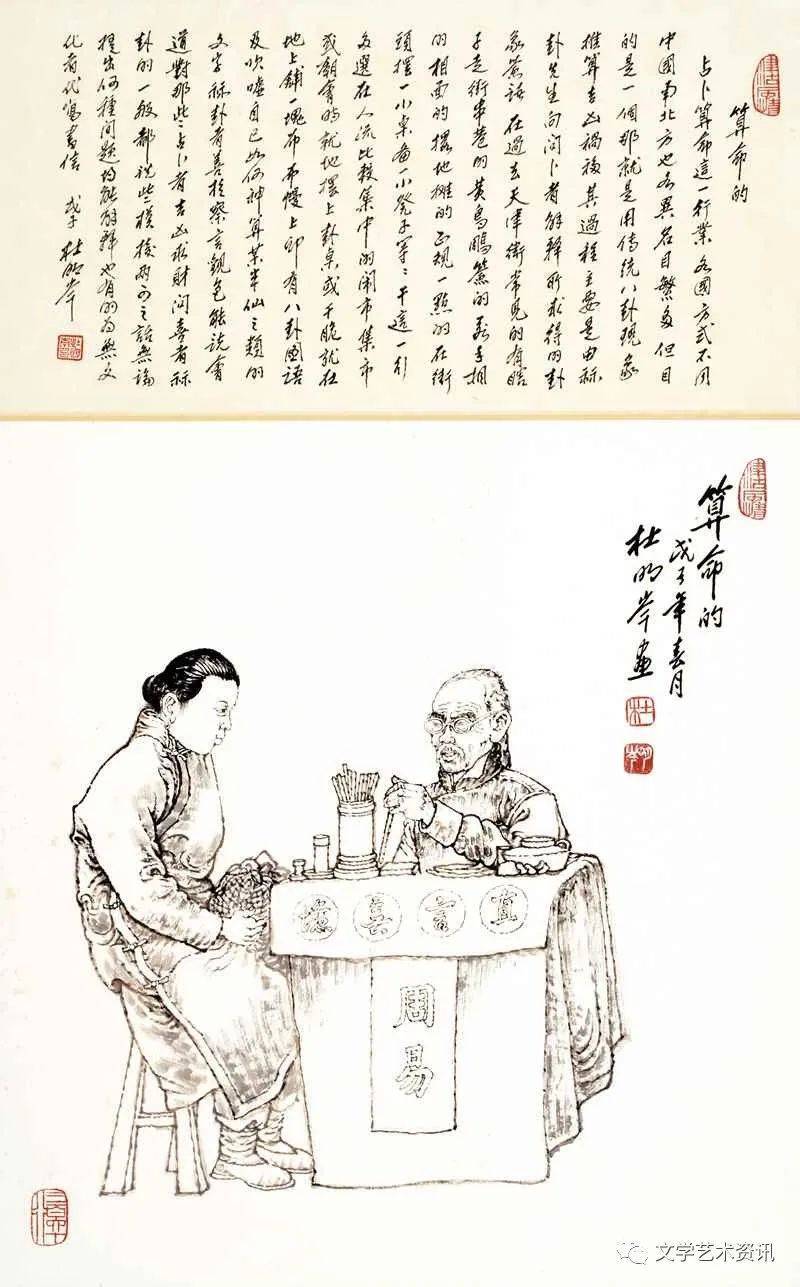 算命的
占卜算命這一行業 各國方式不同
中國南北方也各異名目繁多 但目
的是一個那就是用傳統八卦現象
推算吉凶禍福其過程主要是由
卦先生向问卜者解釋所求得的卦
象籤語 在過去天津衛常見的有瞎
子走街串巷的黄鳥叼籤的看手相
的相面的擺地摊的正规一點的在街
頭擺一小桌备一小凳子等等干這一行
多選在人流比較集中的闹市集市
或廟會時就地摆上卦桌或干脆就在
地上鋪一塊布 布幔上印有八卦圖語
及吹嘘自己如何神算某半仙之類的
文字 卦者善於察言觀色能説會
道對那些占卜者吉凶求財问喜者
卦的一般都说些模棱兩可之話無論
提出何種问題均能解釋也有的为無文
化者代寫書信 戊子 杜明岑
算命的
戊子年春月
杜明岑画
直言
周易
文学艺术资讯